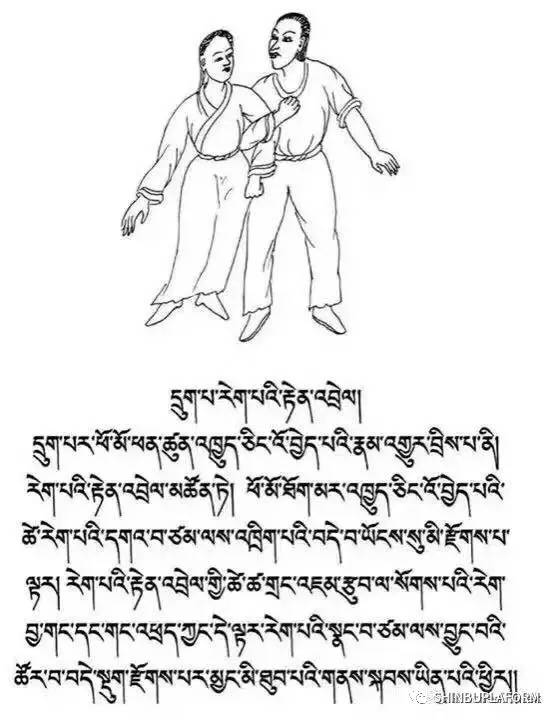 དྲུག་པ་རེག་པའི་རྟེན་འབྲེལ།
དྲུག་པར་ཕོ་མོ་ཕན་ཚུན་འཁྱུད་ཅིང་འོ་བྱེད་པའི་རྣམ་འགྱུར་བྲིས་པ་ནི།
རེག་པའི་རྟེན་འབྲེལ་མཚོན་ཏེ། ཕོ་མོ་ཐོག་མར་འཁྱུད་ཅིང་འོ་བྱེད་པའི་
ཚེ་རེག་པའི་དགའ་བ་ཙམ་ལས་འཁྲིག་པའི་བདེ་བ་ཡོངས་སུ་མི་རྫོགས་པ་
ལྟར། རེག་པའི་རྟེན་འབྲེལ་གྱི་ཚེ་ཚ་གྲང་འཇམ་རྩུབ་ལ་སོགས་པའི་རེག་
བྱ་གང་དང་གང་འཕྲད་ཀྱང་དེ་ལྟར་རེག་པའི་སྣང་བ་ཙམ་ལས་བྱུང་བའི་
ཚོར་བ་བདེ་སྡུག་རྫོགས་པར་མྱང་མི་ཐུབ་པའི་གནས་སྐབས་ཡིན་པའི་ཕྱིར།།
SHINBUPLAFORM